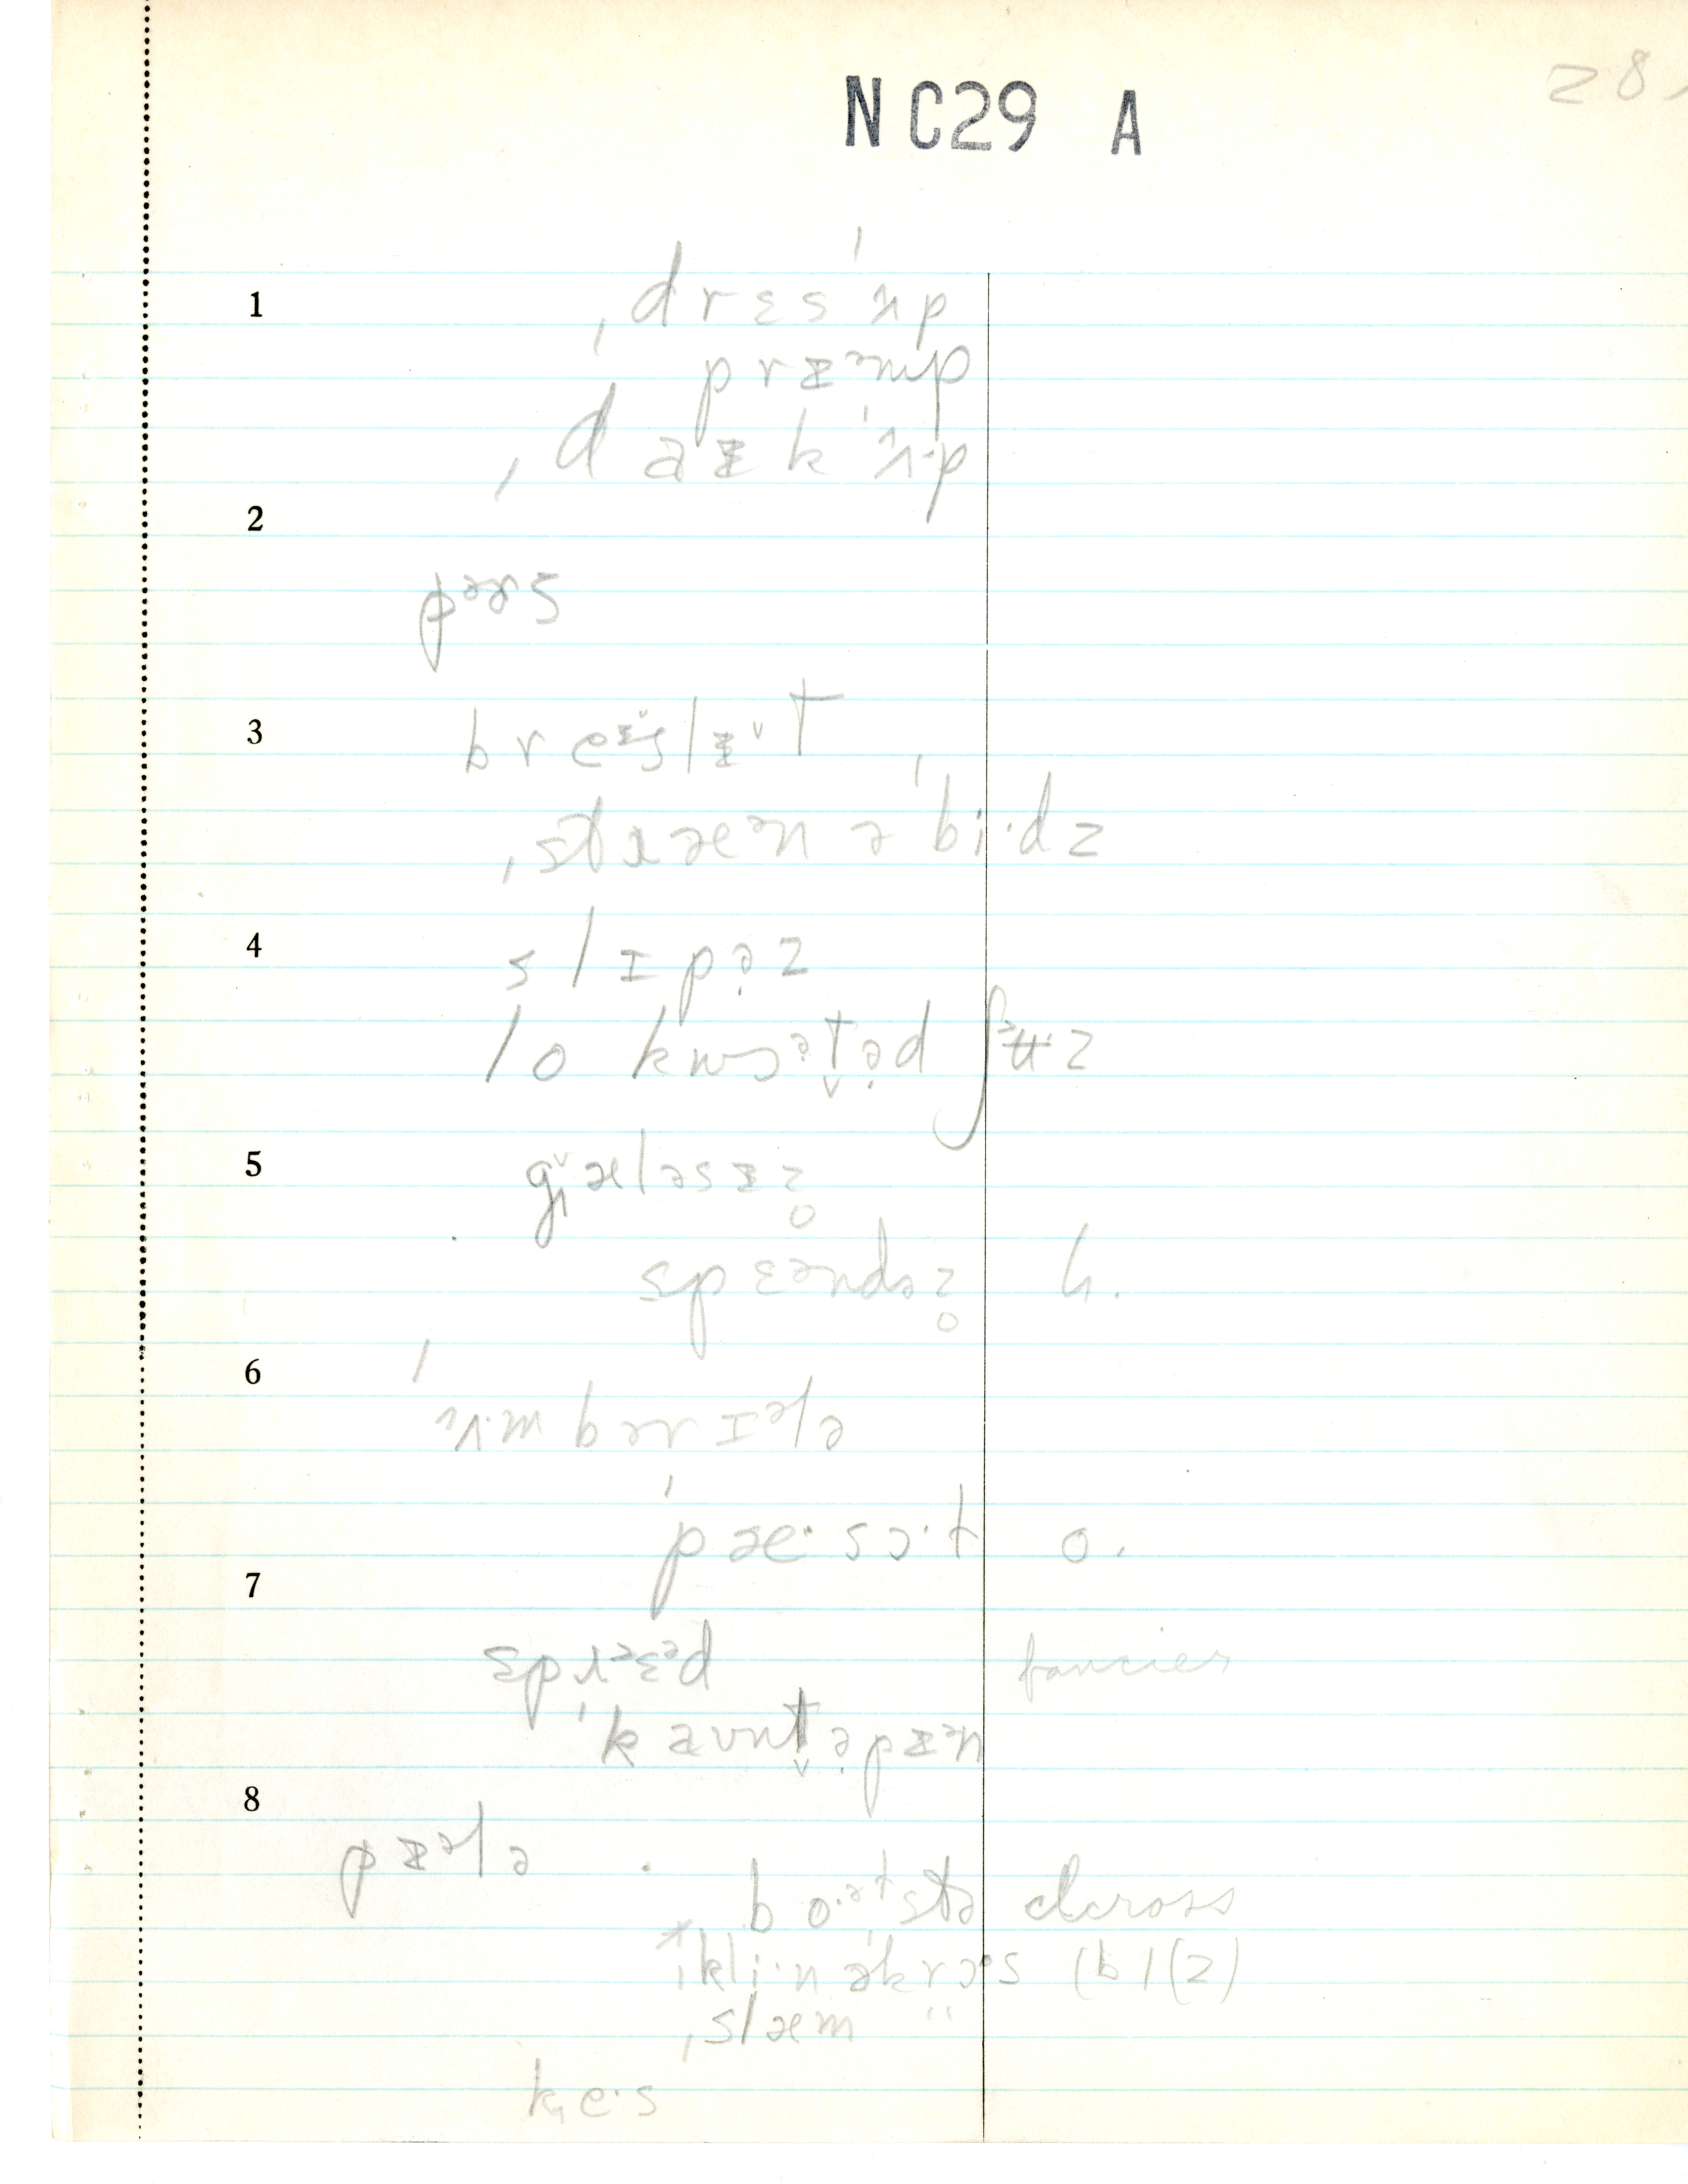 NC29 A
28
1
ˌdrɛsˈʌp
prɪᵊmp
ˌdaɪkˈʌ·p
2
pɚs
3
breɪslɪt
ˌstræᵊn ə ˈbi·dz
4
slɪpə̣z
lo kwɔətə̣d ʃᵊʉz
5
gæləsɪz
spɛᵊndə̣z h.
6
ʌmbərɪᵊlə
ˈpæ·sɔ·t o.
7
sprɛᵊd fancies
ˈkaʊntə̣pɪᵊn
8
pɪᵊlə
bo·ᵊlstə clcross
ˌkli·n əkrɔ·s (bl(2)
ˌslæm "
ke·s